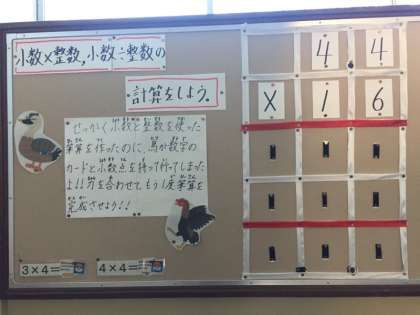 小数×整数，小数÷整数の
計算をしよう。
せっかく小数と整数を使った
筆算を作ったのに、鳥が数字の
カードと小数点を持って行ってしまった
よ!!力を合わせて、もう1度筆算を
完成させよう!!
4 4
× 1 6
3×4=
4×4=